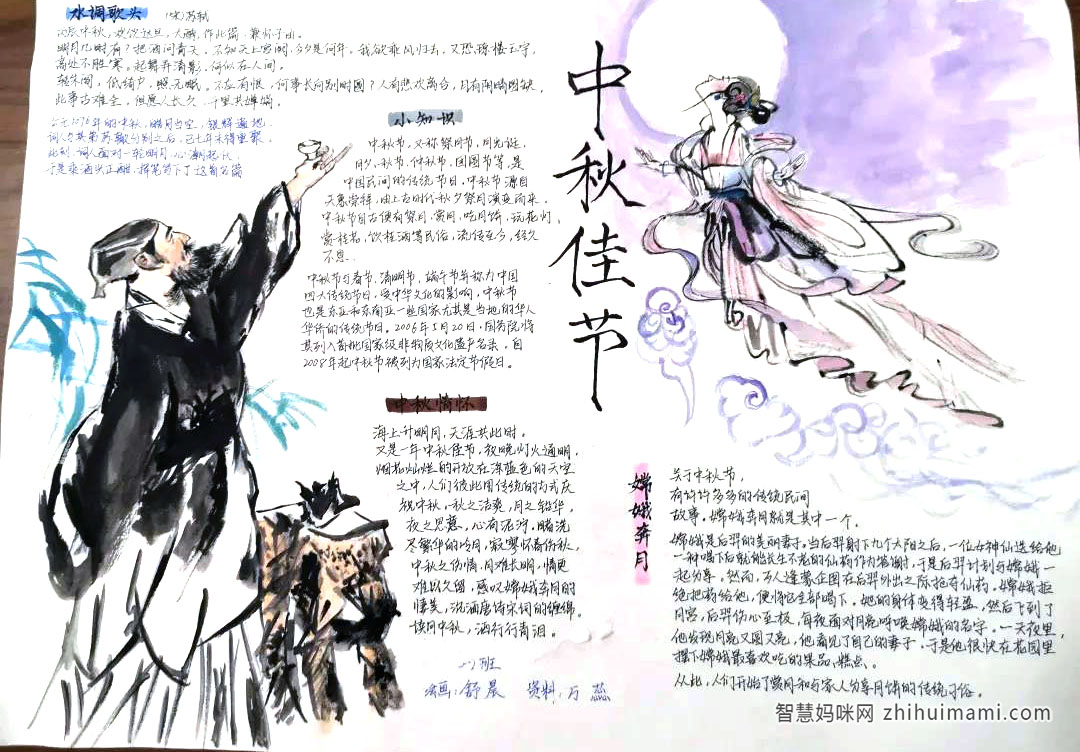 水调歌头 (宋)苏轼
丙辰中秋，欢饮达旦，大醉，作此篇，兼怀子由。
明月几时有？把酒问青天。不知天上宫阙，今夕是何年。我欲乘风归去，又恐琼楼玉宇，
高处不胜寒。起舞弄清影，何似在人间。
转朱阁，低绮户，照无眠。不应有恨，何事长向别时圆？人有悲欢离合，月有阴晴圆缺，
此事古难全。但愿人长久，千里共婵娟。
公元1076年的中秋，皓月当空，银辉遍地，
词人与其弟苏辙分别之后，已七年未得重聚，
此刻，词人面对一轮明月，心潮起伏，
于是乘酒兴正酣，挥笔写下了这首名篇
小知识
中秋节，又称祭月节、月光诞、
月夕、秋节、仲秋节、团圆节等，是
中国民间的传统节日。中秋节源自
天象崇拜，由上古时代秋夕祭月演变而来。
中秋节自古便有祭月、赏月、吃月饼、玩花灯、
赏桂花、饮桂酒等民俗，流传至今，经久
不息。
中秋节与春节、清明节、端午节并称为中国
四大传统节日。受中华文化的影响，中秋节
也是东亚和东南亚一些国家尤其是当地的华人
华侨的传统节日。2006年5月20日，国务院将
其列入首批国家级非物质文化遗产名录。自
2008年起中秋节被列为国家法定节假日。
中秋情怀
海上升明月，天涯共此时。
又是一年中秋佳节，教晚灯火通明，
烟花灿烂的开放在深蓝色的天空
之中，人们彼此用传统的方式庆
祝中秋，秋之洁爽，月之铅华，
夜之思慕，心有泥泞，暗洗
尽繁华的吟月，寂寥怀着伤秋，
中秋之伤情，月难长明，情更
难以久留，感叹嫦娥奔月的
凄美，沉湎唐诗宋词的缠绵。
读月中秋，洒行行青泪。
(1)班
绘画：舒晨 资料：万蕊
中秋佳节
嫦娥奔月
关于中秋节，
有许许多多的传统民间
故事，嫦娥奔月就是其中一个。
嫦娥是后羿的美丽妻子。当后羿射下九个太阳之后，一位女神仙送给他
一种喝下后就能长生不老的仙药作为答谢，于是后羿计划与嫦娥一
起分享，然而，歹人逢蒙企图在后羿外出之际抢夺仙药，嫦娥拒
绝把药给他，便将它全部喝下。她的身体变得轻盈，然后飞到了
月宫，后羿伤心至极，每夜面对月亮呼唤嫦娥的名字。一天夜里，
他发现月亮又圆又亮，他看见了自己的妻子，于是他很快在花园里
摆下嫦娥最喜欢吃的果品、糕点。
从此，人们开始了赏月和与家人分享月饼的传统习俗。
智慧妈咪网 zhihuimami.com